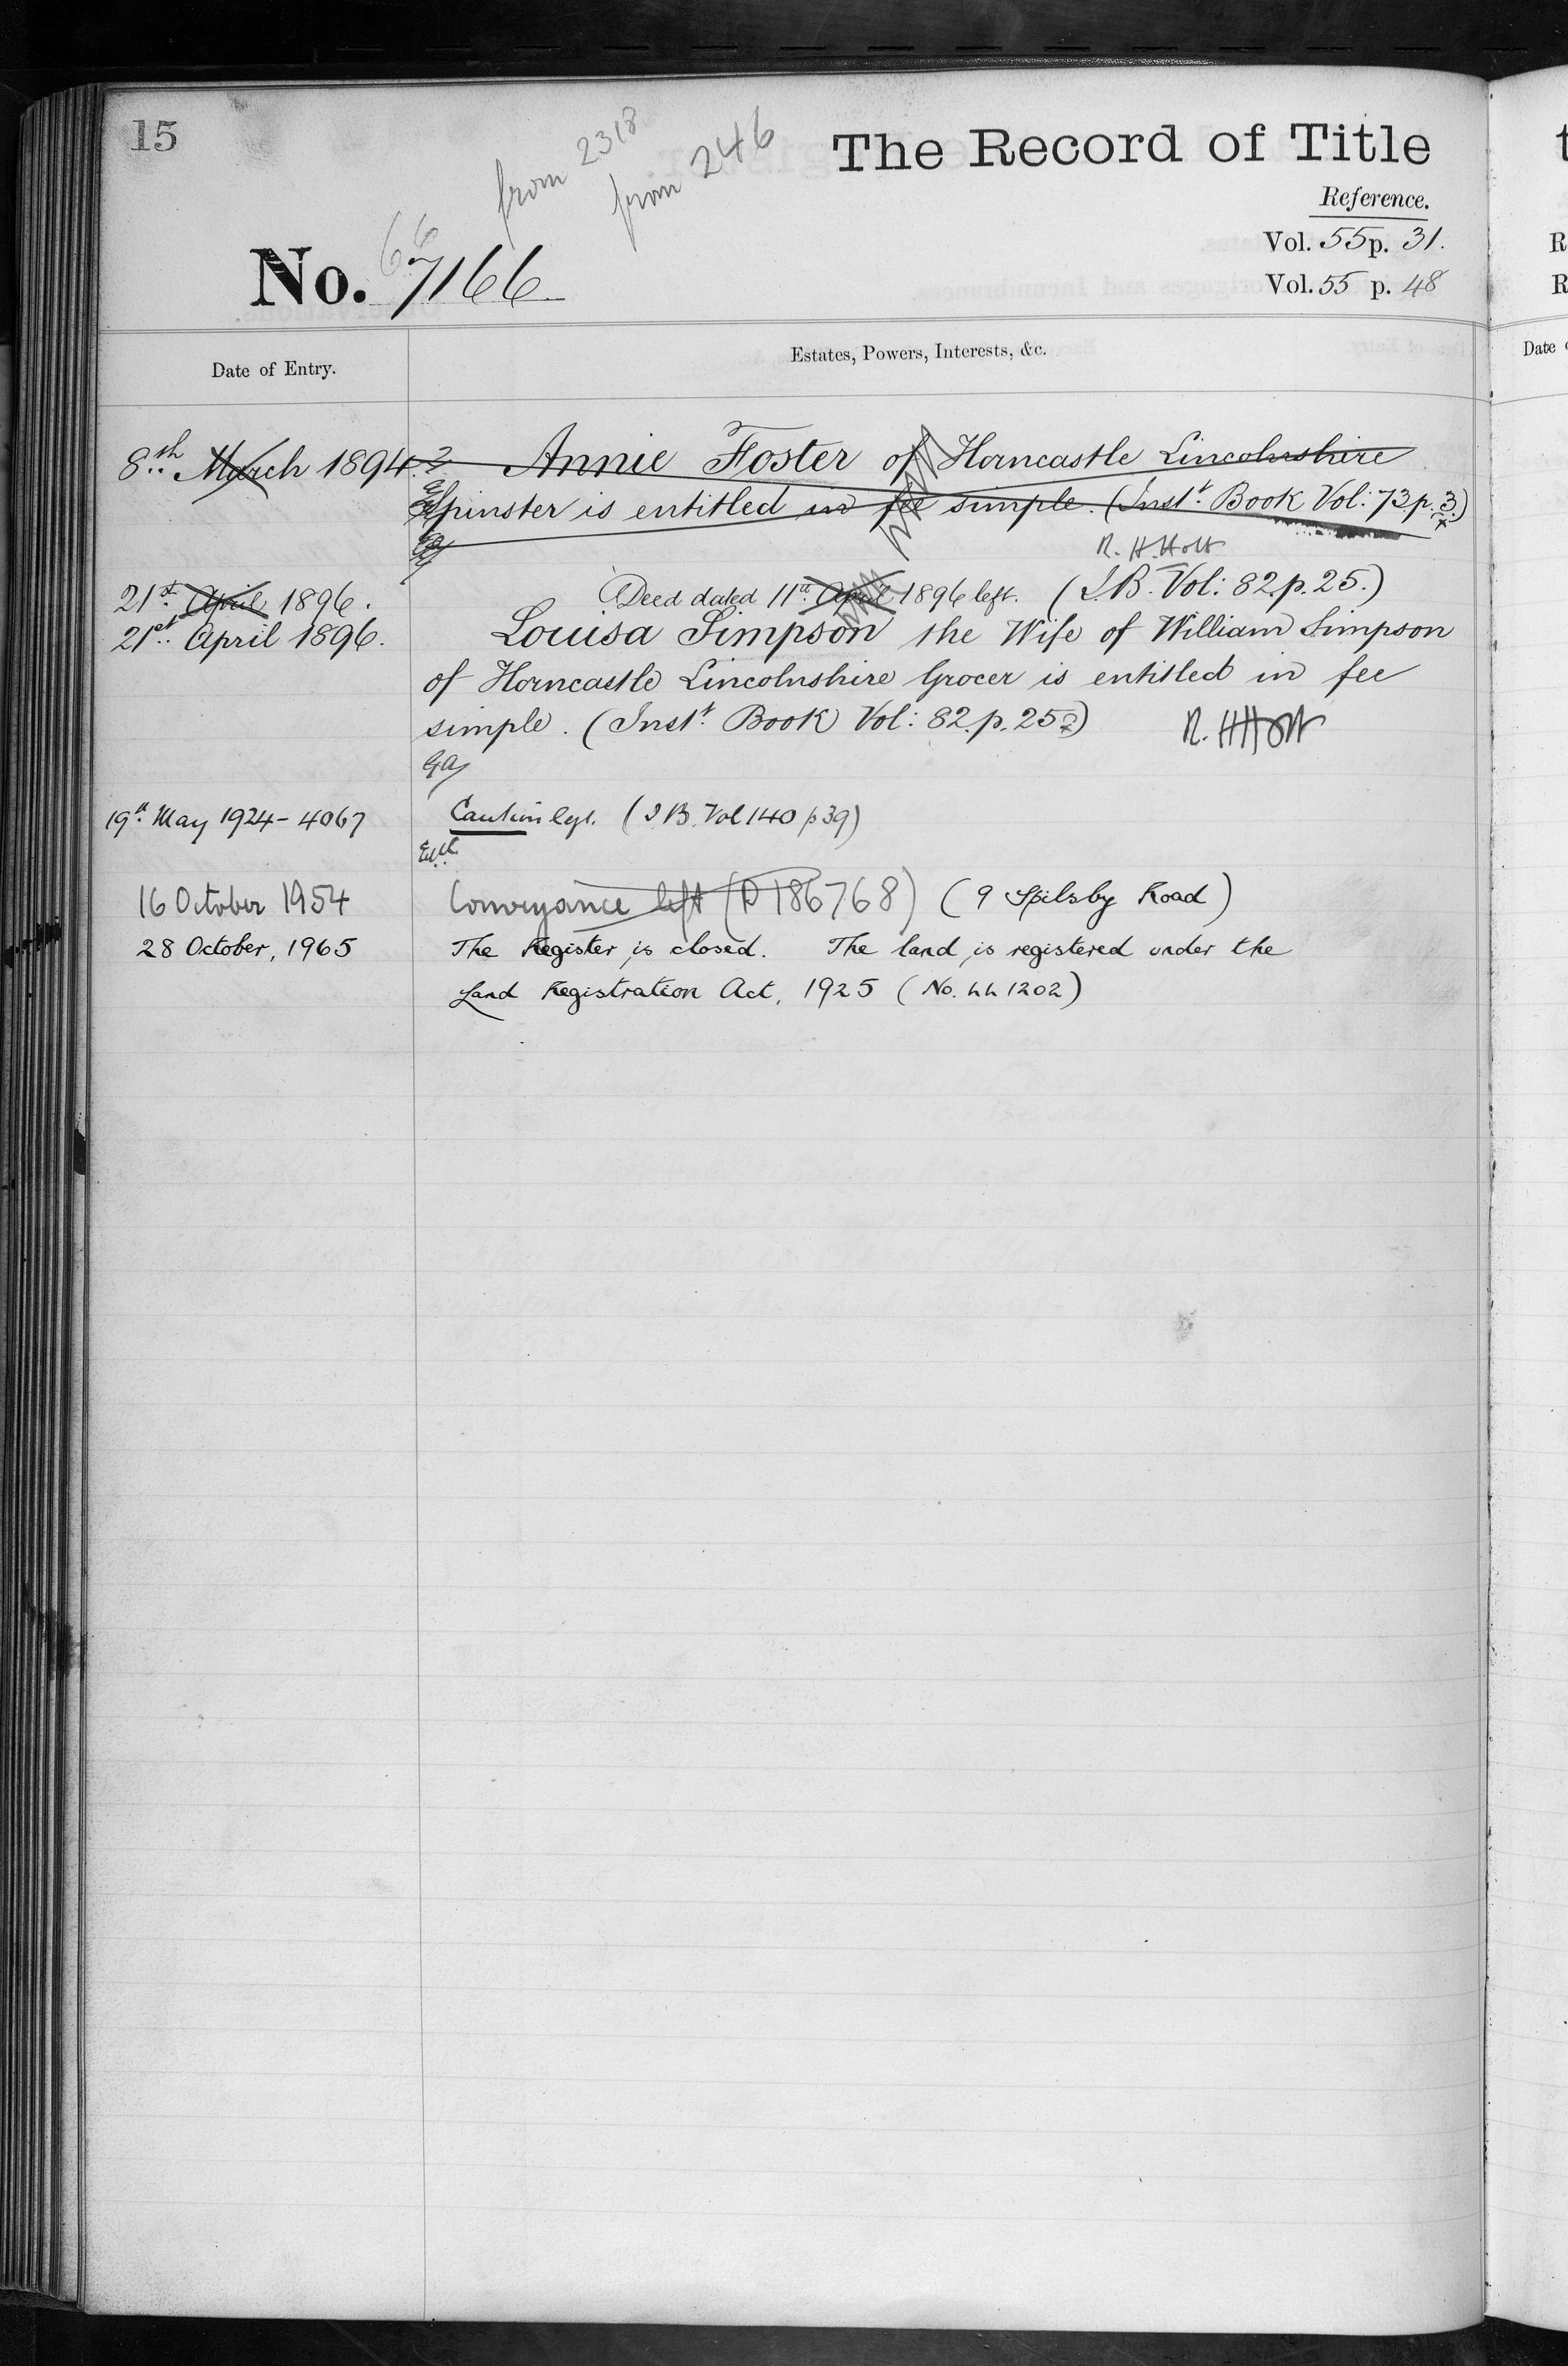 15
from 2318
from 246
The Record of Title
Reference.
Vol. 55 p. 31.
Vol. 55 p. 48
66
No. 7166
Date of Entry.
Estates, Powers, Interests, &c.
8th March 1894. Annie Foster of Horncastle Lincolnshire
Spinster is entitled in fee simple. (Inst. Book Vol: 73 p. 3.)
R. H. Holt
21st April 1896. Deed dated 11th April 1896 left. (I.B. Vol: 82 p. 25.)
21st April 1896. Louisa Simpson the Wife of William Simpson
of Horncastle Lincolnshire Grocer is entitled in fee
simple. (Inst. Book Vol: 82. p. 25.) R. H Holt
19th May 1924 - 4067 Caution lgd. (I B. Vol 140 p 39)
16 October 1954 Conveyance left (P 186768) (9 Spilsby Road)
28 October, 1965 The Register is closed. The land is registered under the
Land Registration Act, 1925 (No. LL 1202)
Date